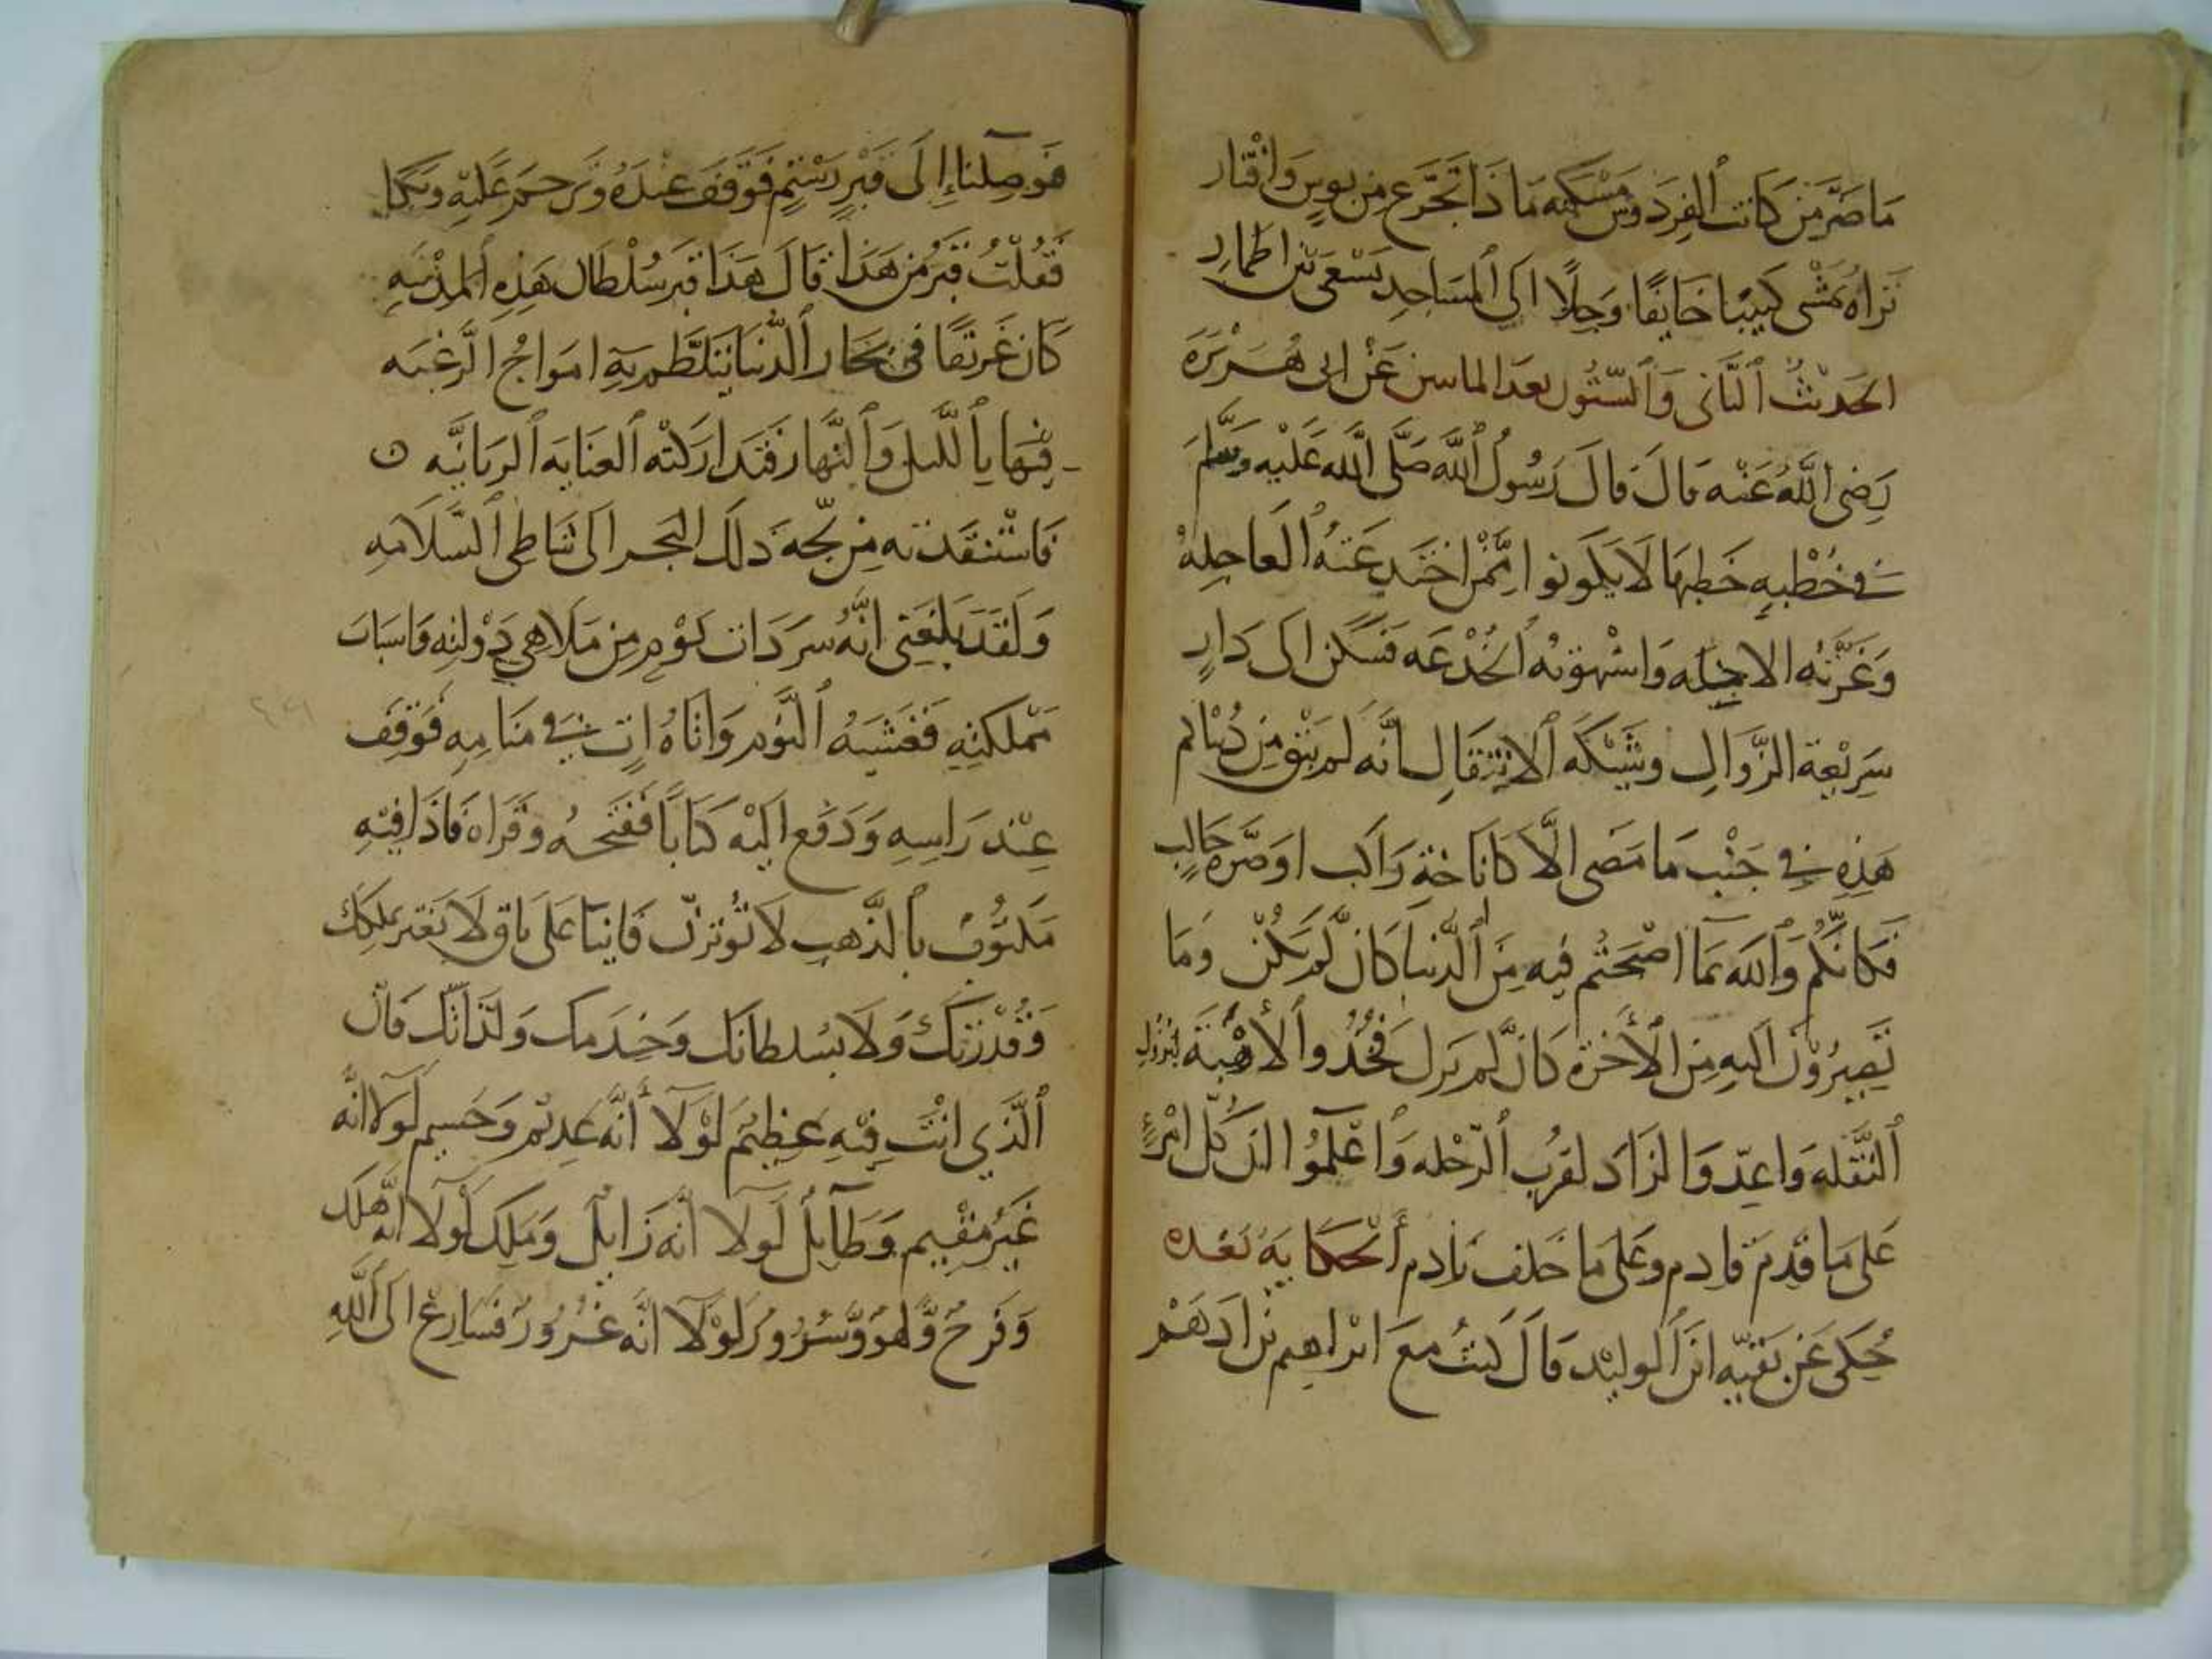 ما ضر من كانت الفردوس مسكنه ماذا تجرع من بوس واقتار
تراه يمشي كييبا خايفا وجلا الى المساجد يسعى بين اطمار
الحديث الثاني والستون بعد الماتين عن ابي هريرة
رضي الله عنه قال قال رسول الله صلى الله عليه وسلم
في خطبه خطبها لا يكونوا ممن اختدعته العاجله
وغرته الا واشهوته الخدعه فسكن الى دار
سريعة الزوال وشيكه الانتقال انه لم يبق من دنياكم
هذه في جنب ما مضى الا كاناخة راكب او صره حالب
فكانكم والله بما اصبحتم فيه من الدنيا كان لم يكن وما
تصيرون اليه من الأخرة كان لم يزل فخذوا الأهبة لنزول
النقله واعدوا الزاد لقرب الرحله واعلموا ان كل امرئ
على ما قدم قادم وعلى ما خلف نادم الحكايه بعده
حكى عن بقيه ابن الوليد قال كنت مع ابراهيم بن ادهم
فوصلنا إلى قبر فوقف عنده وترحم عليه وبكا
فقلت قبر من هذا قال هذا قبر سلطان هذه المدينه
كان غريقا في بحار الدنيا تتلطم به امواج الرغبه
فيها بالليل والنهار فتداركته العنايه الربانيه ه
فاستنقذته من لجة ذلك البحر الى شاطي السلامه
ولقد بلغني انه سر ذات يوم من ملاهي دولته واسباب
مملكته فغشيه النوم واتاه ات في منامه فوقف
عند راسه ودفع اليه كتابا ففتحه وقراه فاذا فيه
مكتوب بالذهب لا توثرن فانيا على باق لا تغتر بملكك
وقدرتك ولا بسلطانك وخدمك ولذاتك فان
الذي انت فيه عظيم لولا أنه عديم وجسيم لولا انه
غير مقيم وطايل لولا انه زايل وملك لولا انه هلك
وفرح ولهو وسرور لولا انه غرور فسارع الى الله